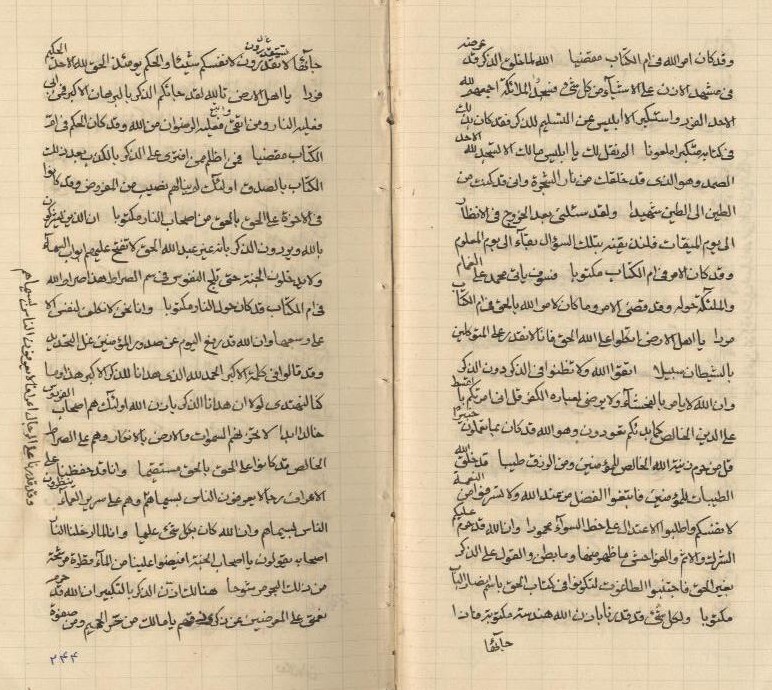 وقد كان امر الله في ام الكتاب مقضيا الله لما خلق الذكر قد عرضه
في مشهد الاذن على الاشياء من كل شيء فسجد الملئكة اجمعهم لله
الاحد الفرد واستكبر الا ابليس عن التسليم للذكر فقد كان بذلك
في كتابه متكبرا ملعونا الم يقل لك يا ابليس مالك الا تسجد لله الاحد
الصمد وهو الذي قد خلقك من نار الشجرة واني قد كنت من
الطين الى الطين شهيدا ولقد سئلني بعد الخروج في الانظار
الى يوم الميقات بتلك السؤال بقاء الى يوم المعلوم
وقد كان الامر في ام الكتاب مكتوبا فسوف ياتي محمد على الغمام
والملئكة حوله وقد قضى الامر وما كان لامر الله بالحق في ام الكتاب
مردا يا اهل الارض اتكلوا على الله الحق فانا لا نقدر على المتوكلين
بالشيطان سبيلا اتقوا الله ولا تظنوا في الذكر دون الذكر
وان الله لا يامر بالفحشاء ولا يرضى لعباده الكفر قل انما امرتكم بالقسط
على الدين الخالص كما بدئكم تعودون وهو الله قد كان بما تعملون خبيرا
قل من حرم زينة الله الخالص للمؤمنين ومن الرزق طيبا قد خلق الله
الطيبات للمؤمنين فابتغوا الفضل من عند الله ولا تسرفوا من النعمة
لانفسكم واطلبوا الاعتدال على خط السواء محمودا وان الله قد حرم عليكم
الشرك والاثم والفواحش ما ظهر منها وما بطن والقول على الذكر
بغير الحق فاجتنبوا الطاغوت لتكونوا في كتاب الحق باسم انصار الباب
مكتوبا ولكل شيء قد قدرنا باذن الله هندسة مكتوبة فاذا
جائها
جائها لا تقدرون تستقدرون لانفسكم شيئا والحكم يومئذ الحق لله الاحد الحكيم
فردا يا اهل الارض تالله لقد جائكم الذكر بالبرهان الاكبر فمن ابى
فعليه النار ومن اتقى واتبع فعليه الرضوان من الله وقد كان الحكم في ام
الكتاب مقضيا فمن اظلم ممن افترى على الذكر بالكذب بعد ذلك
الكتاب بالصدق اولئك لن ينالهم نصيب من الفردوس وقد كانوا
في الاخرة على الحق بالحق من اصحاب النار مكتوبا ان الذين يشركون
بالله ويردون الذكر بانه غير عبد الله الحق لا تفتح عليهم ابواب السماء
ولا يدخلون الجنة حتى تلج النفوس في سم الصراط هذا صراط الله
في ام الكتاب قد كان حول النار مكتوبا وانا نحن لا نكلف لنفس الا
على وسعها وان الله قد رفع اليوم عن صدور المؤمنين غل التحديد
وقد قالوا في كلمة الاكبر الحمد لله الذي هدانا للذكر الاكبر هذا وما
كنا لنهتدي لولا ان هدانا الذكر باذن الله اولئك هم اصحاب الفردوس
خالدا ابدا لاخوف لهم السموات والارض بالانكار وهم على الصراط
الخالص قد كانوا على الحق بالحق مستقيما وانا قد حفظنا على
الاعراف رجالا يعرفون الناس بسيماهم وهم على سرير العماء ينظرون
الناس بسيماهم وان الله كان بكل شيء عليما وانا لما ادخلنا النار
اصحابه يقولون يا اصحاب الجنة افيضوا علينا من الماء قطرة من رشحة
من ذلك البحر مرشوحا هنالك اذن الذكر بالتكبير ان الله قد حرم
نعمتي على المعرضين عن ذكري فهم يا مالك من حر الجحيم ومن صفوة
وقد قدرنا على الرجال اعرافا لا يعرفون الناس بسيماهم
٢٤٤